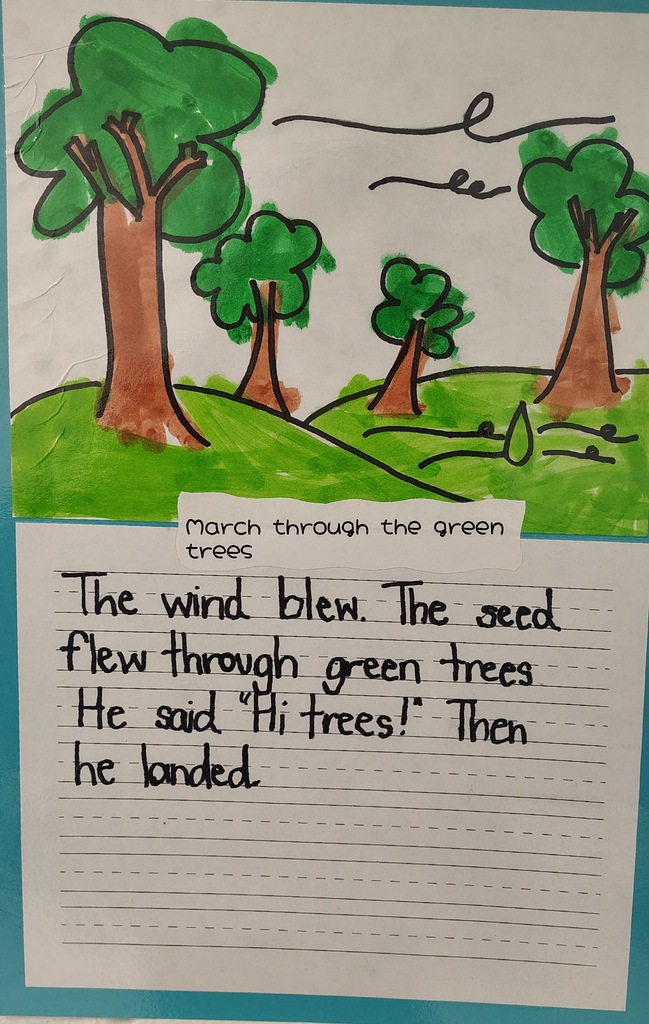 March through the green
trees
The wind blew. The seed
flew through green trees
He said "Hi trees!" Then
he landed